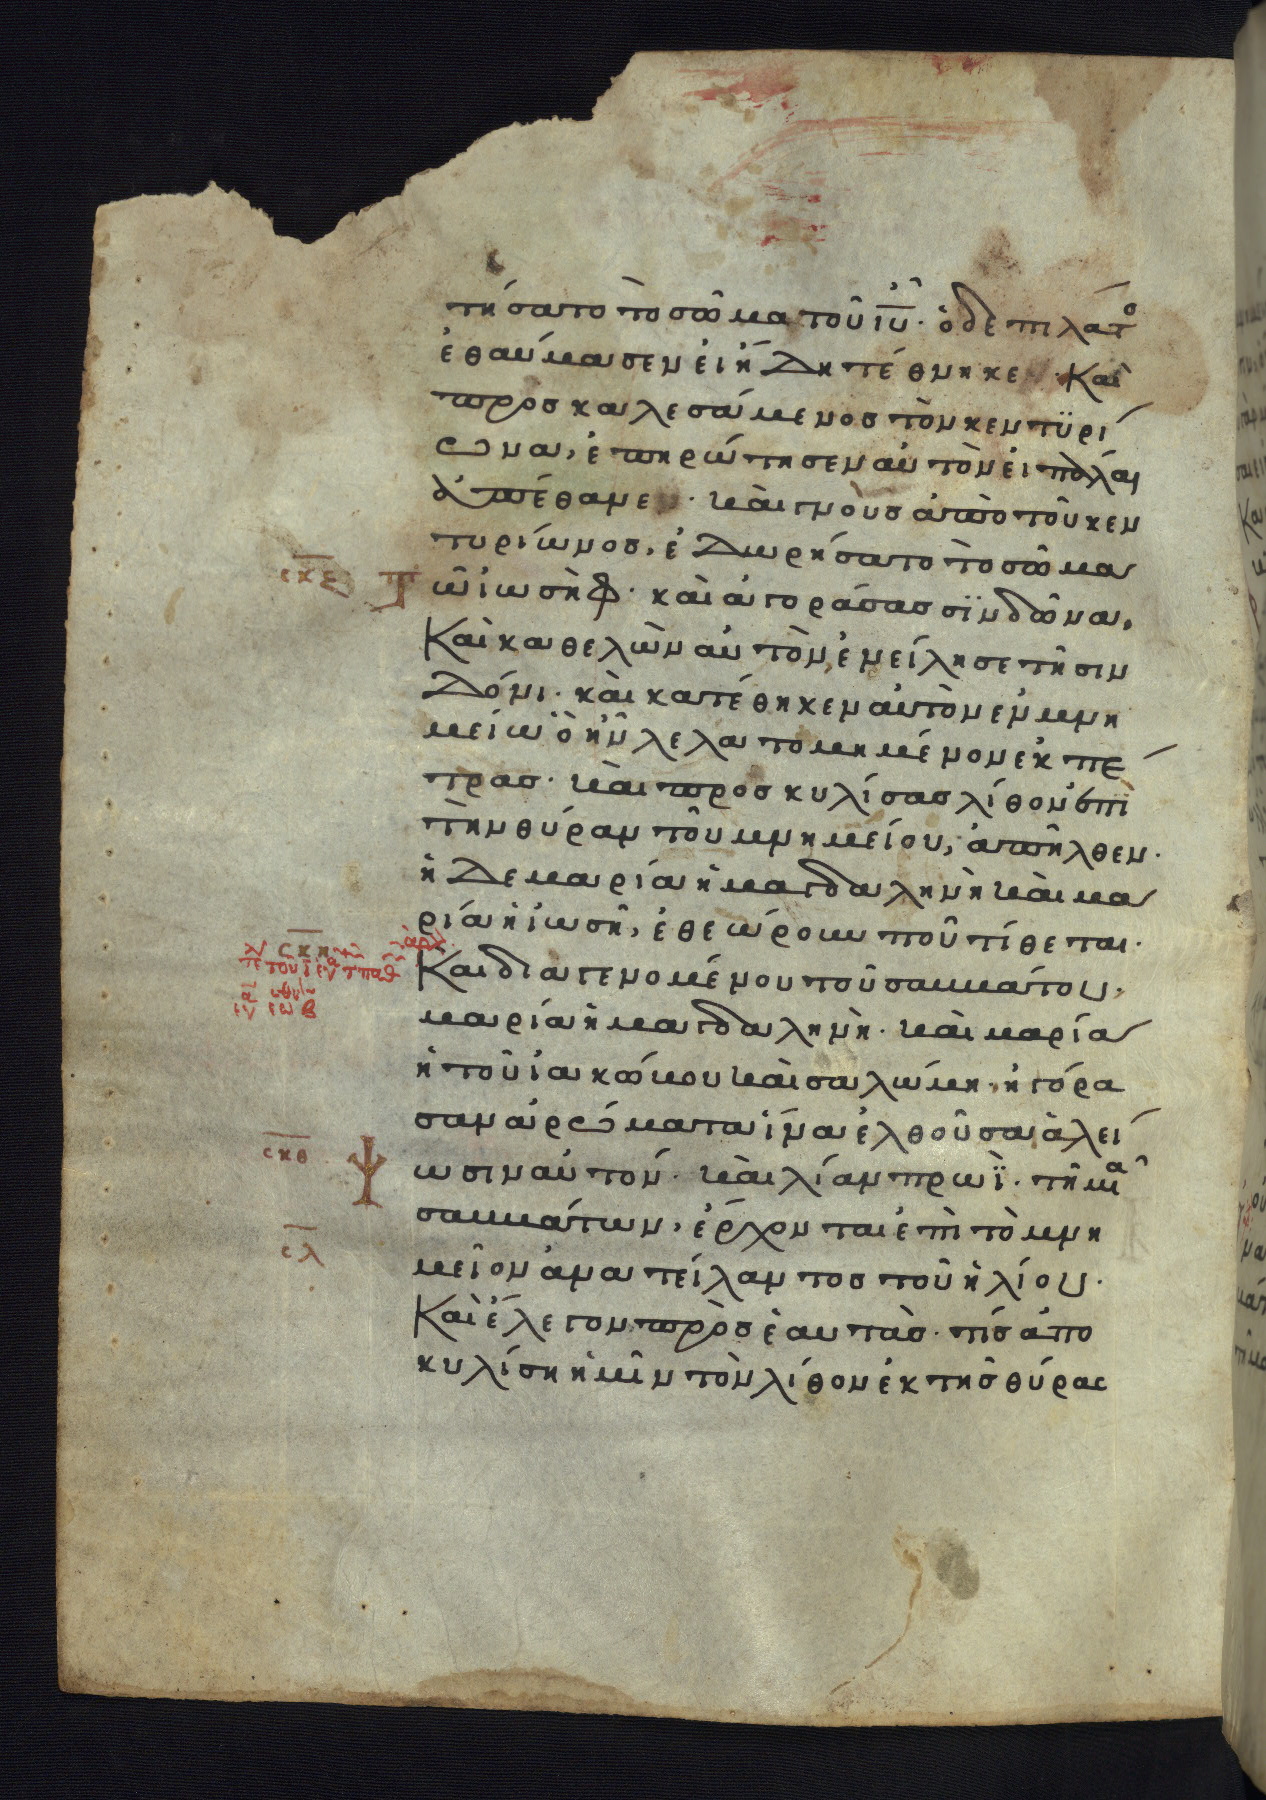 τήσατο τὸ σῶμα τοῦ ιυ̅· ὁ δε πιλάτο
ἐθαύμασεν ἐι ἤδη τέθνηκε· Καὶ
προσκαλεσάμενοσ τὸν κεντϋρί
ωνα, ἐπηρώτησεν αὐτὸν ἐι πάλαι
ἀπέθανε· καὶ γνουσ ἀπὸ τοῦ κεν
τυρίωνοσ, ἐδωρήσατο τὸ σῶμα
σκε Τ ῶ ἰωσὴφ· καὶ ἀγοράσασ σϊνδῶνα,
Καὶ καθελὼν αὐτὸν, ἐνείλησε τῆ σιν
δόνι· καὶ κατέθηκεν ἀυτὸν ἐν μνη
μείω ὃ ἦν λελατομημένον ἐκ πέ
τρασ· καὶ προσκυλίσασ λίθον ἐπὶ
τὴν θύραν τοῦ μνημείου, ἀπῆλθεν·
ἡ δε μαρία ἡ μαγδαληνὴ καὶ μα
ρία ἡ ἰωσῆ, ἐθεώρουν ποῦ τίθεται·
σκη Και διαγενομένου τοῦ σαμμάτου·
μαρία ἡ μαγδαληνὴ· καὶ μαρία
ἡ τοῦ ἰακώμου καὶ σαλώμη, ἠγόρα
σαν ἀρώματα ἵνα ἐλθοῦσαι ἀλεί
σκθ Ψ ωσιν αὐτόν· καὶ λίαν πρωῒ· τῆ μιᾶ
σλ σαμμάτων, ἔρχονται ἐπὶ τὸ μνη
μεῖον ἀνατείλαντοσ τοῦ ἡλίου·
Καὶ ἔλεγον πρὸσ ἑαυτὰσ· τίσ ἀπο
κυλίση ἡμῖν τὸν λίθον ἐκ τῆσ θύρασ